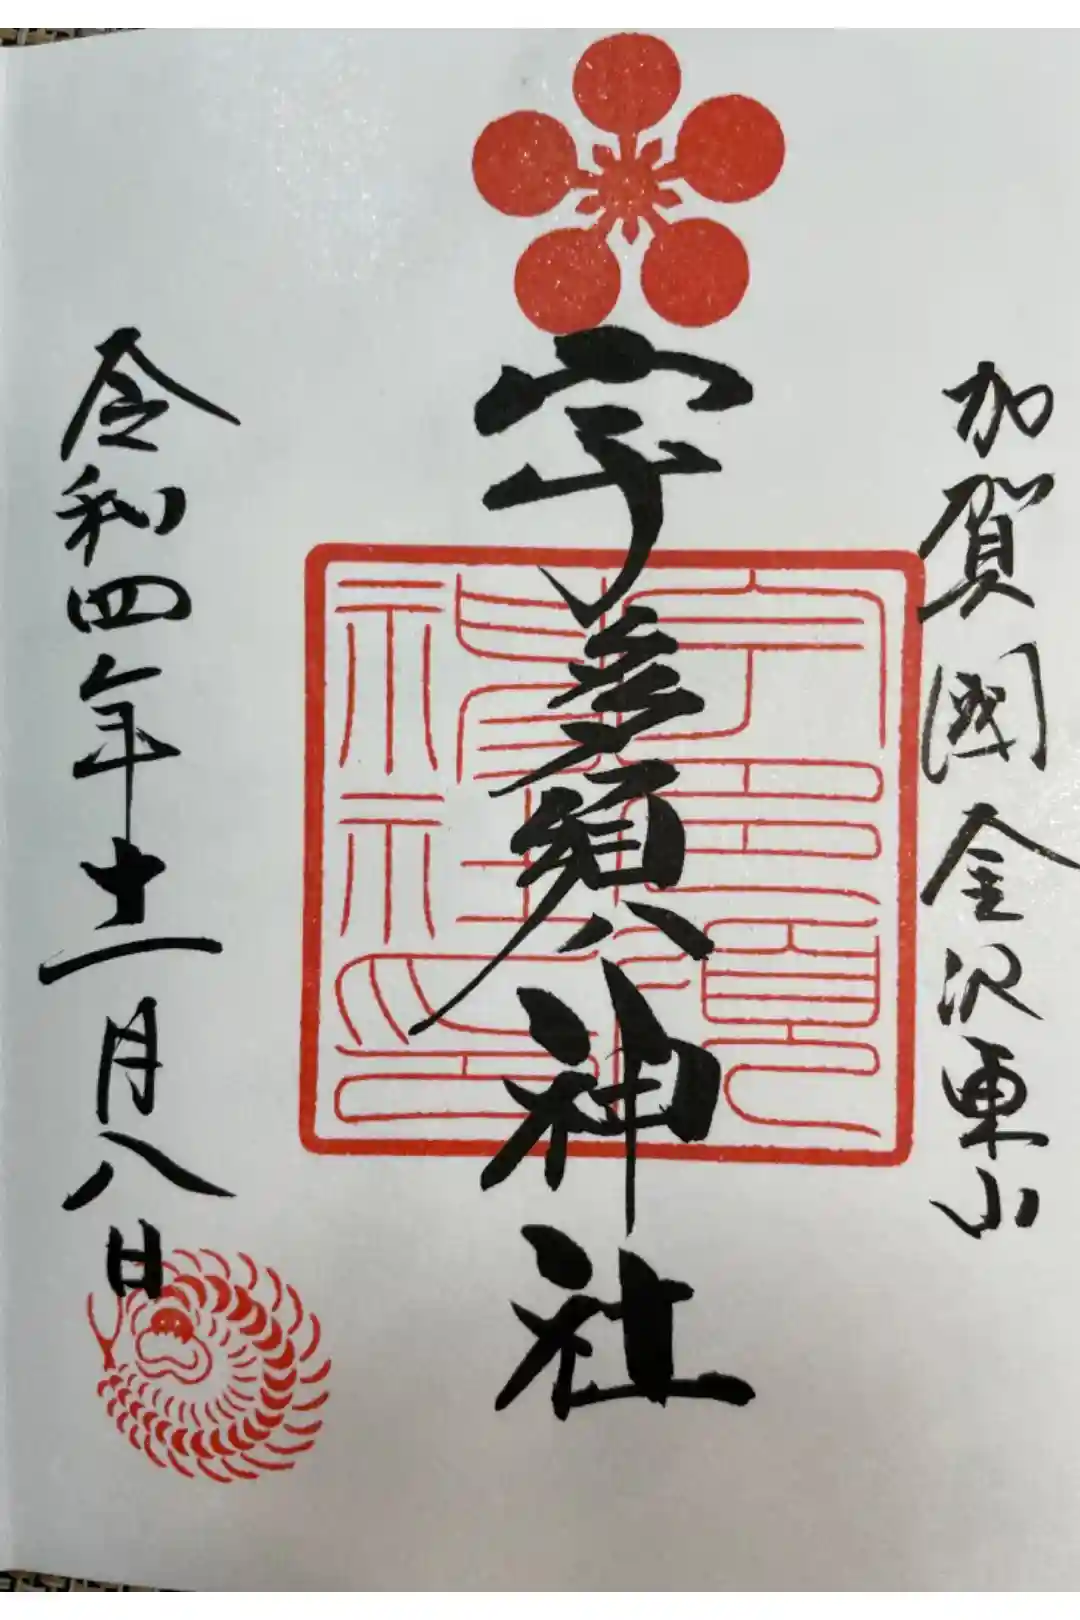 加賀國金沢東山
宇多須神社
宇多須神社神社印
令和四年十一月八日